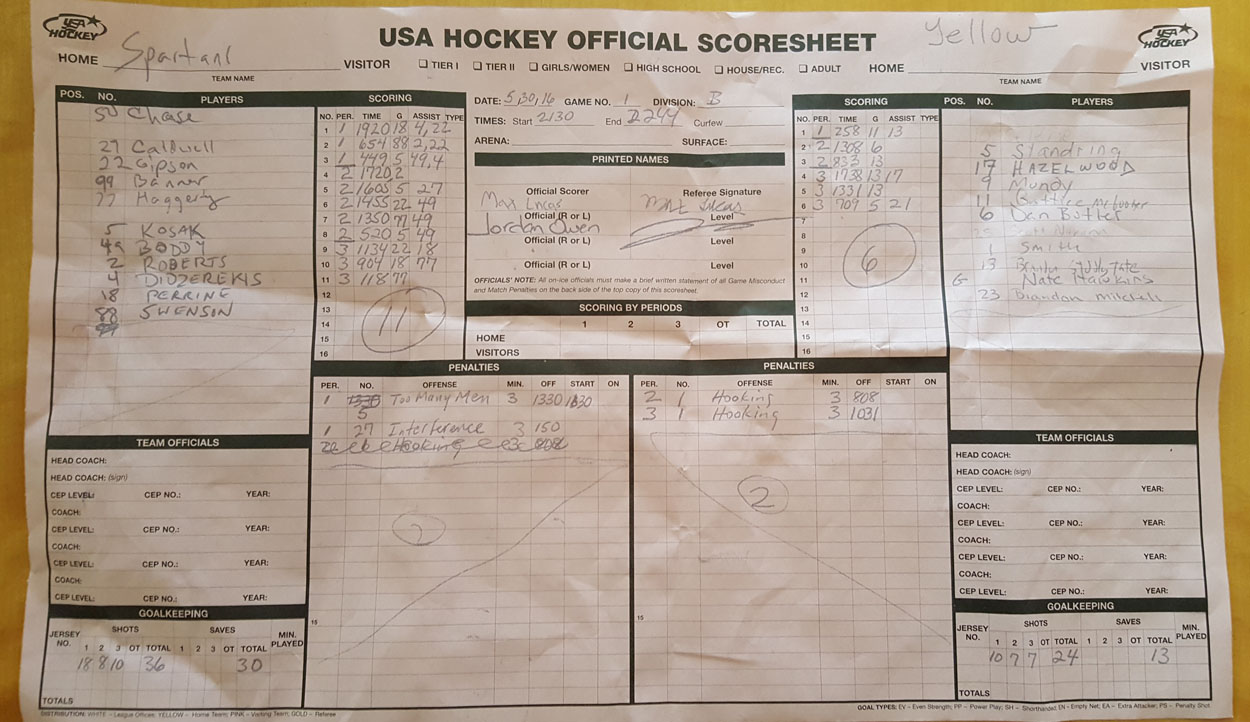 USA HOCKEY
USA HOCKEY OFFICIAL SCORESHEET
Yellow
USA HOCKEY
HOME Spartans VISITOR
TEAM NAME
TIER I TIER II GIRLS/WOMEN HIGH SCHOOL HOUSE/REC. ADULT
HOME VISITOR
TEAM NAME
POS. NO. PLAYERS
Chase
27 Caldwell
22 Gipson
99 Banner
77 Haggerty
5 KOSAK
49 BODDY
2 ROBERTS
4 DIDZEREKIS
18 PERRINE
88 SWENSON
SCORING
NO. PER. TIME G ASSIST TYPE
1 1 1920 18 4,22
2 1 654 88 2,22
3 1 449 5 49,4
4 2 1720 2
5 2 1605 5 27
6 2 1455 22 49
7 2 1350 77 49
8 2 520 5 49
9 3 1134 22 18
10 3 904 18 77
11 3 118 77
12
13
14
15
16
11
DATE: 5,30,16 GAME NO. 1 DIVISION: B
TIMES: Start 2130 End 2244 Curfew
ARENA: SURFACE:
PRINTED NAMES
Official Scorer Referee Signature
Max Lucas
Official (R or L) Level
Jordan Owen
Official (R or L) Level
Official (R or L) Level
OFFICIALS' NOTE: All on-ice officials must make a brief written statement of all Game Misconduct
and Match Penalties on the back side of the top copy of this scoresheet.
SCORING BY PERIODS
1 2 3 OT TOTAL
HOME
VISITORS
SCORING
NO. PER. TIME G ASSIST TYPE
1 1 258 11 13
2 2 1308 6
3 2 833 13
4 3 1738 13 17
5 3 1331 13
6 3 709 5 21
7
8
9
10
11
12
13
14
15
16
6
POS. NO. PLAYERS
5 Standring
17 HAZELWOOD
9 Mundy
11
6 Dan Butler
1 Smith
13
G Nate Hawkins
23 Brandon Mitchell
PENALTIES
PER. NO. OFFENSE MIN. OFF START ON
1 Too Many Men 3 1330
5
1 27 Interference 3 150
Hooking
2
15
PENALTIES
PER. NO. OFFENSE MIN. OFF START ON
2 1 Hooking 3 808
3 1 Hooking 3 1031
2
15
TEAM OFFICIALS
HEAD COACH:
HEAD COACH: (sign)
CEP LEVEL: CEP NO.: YEAR:
COACH:
CEP LEVEL: CEP NO.: YEAR:
COACH:
CEP LEVEL: CEP NO.: YEAR:
COACH:
CEP LEVEL: CEP NO.: YEAR:
GOALKEEPING
JERSEY NO. SHOTS SAVES MIN. PLAYED
1 2 3 OT TOTAL 1 2 3 OT TOTAL
18 8 10 36 30
TOTALS
TEAM OFFICIALS
HEAD COACH:
HEAD COACH: (sign)
CEP LEVEL: CEP NO.: YEAR:
COACH:
CEP LEVEL: CEP NO.: YEAR:
COACH:
CEP LEVEL: CEP NO.: YEAR:
COACH:
CEP LEVEL: CEP NO.: YEAR:
GOALKEEPING
JERSEY NO. SHOTS SAVES MIN. PLAYED
1 2 3 OT TOTAL 1 2 3 OT TOTAL
10 7 7 24 13
TOTALS
DISTRIBUTION: WHITE – League Offices; YELLOW – Home Team; PINK – Visiting Team; GOLD – Referee
GOAL TYPES: EV – Even Strength; PP – Power Play; SH – Shorthanded; EN - Empty Net; EA – Extra Attacker; PS – Penalty Shot